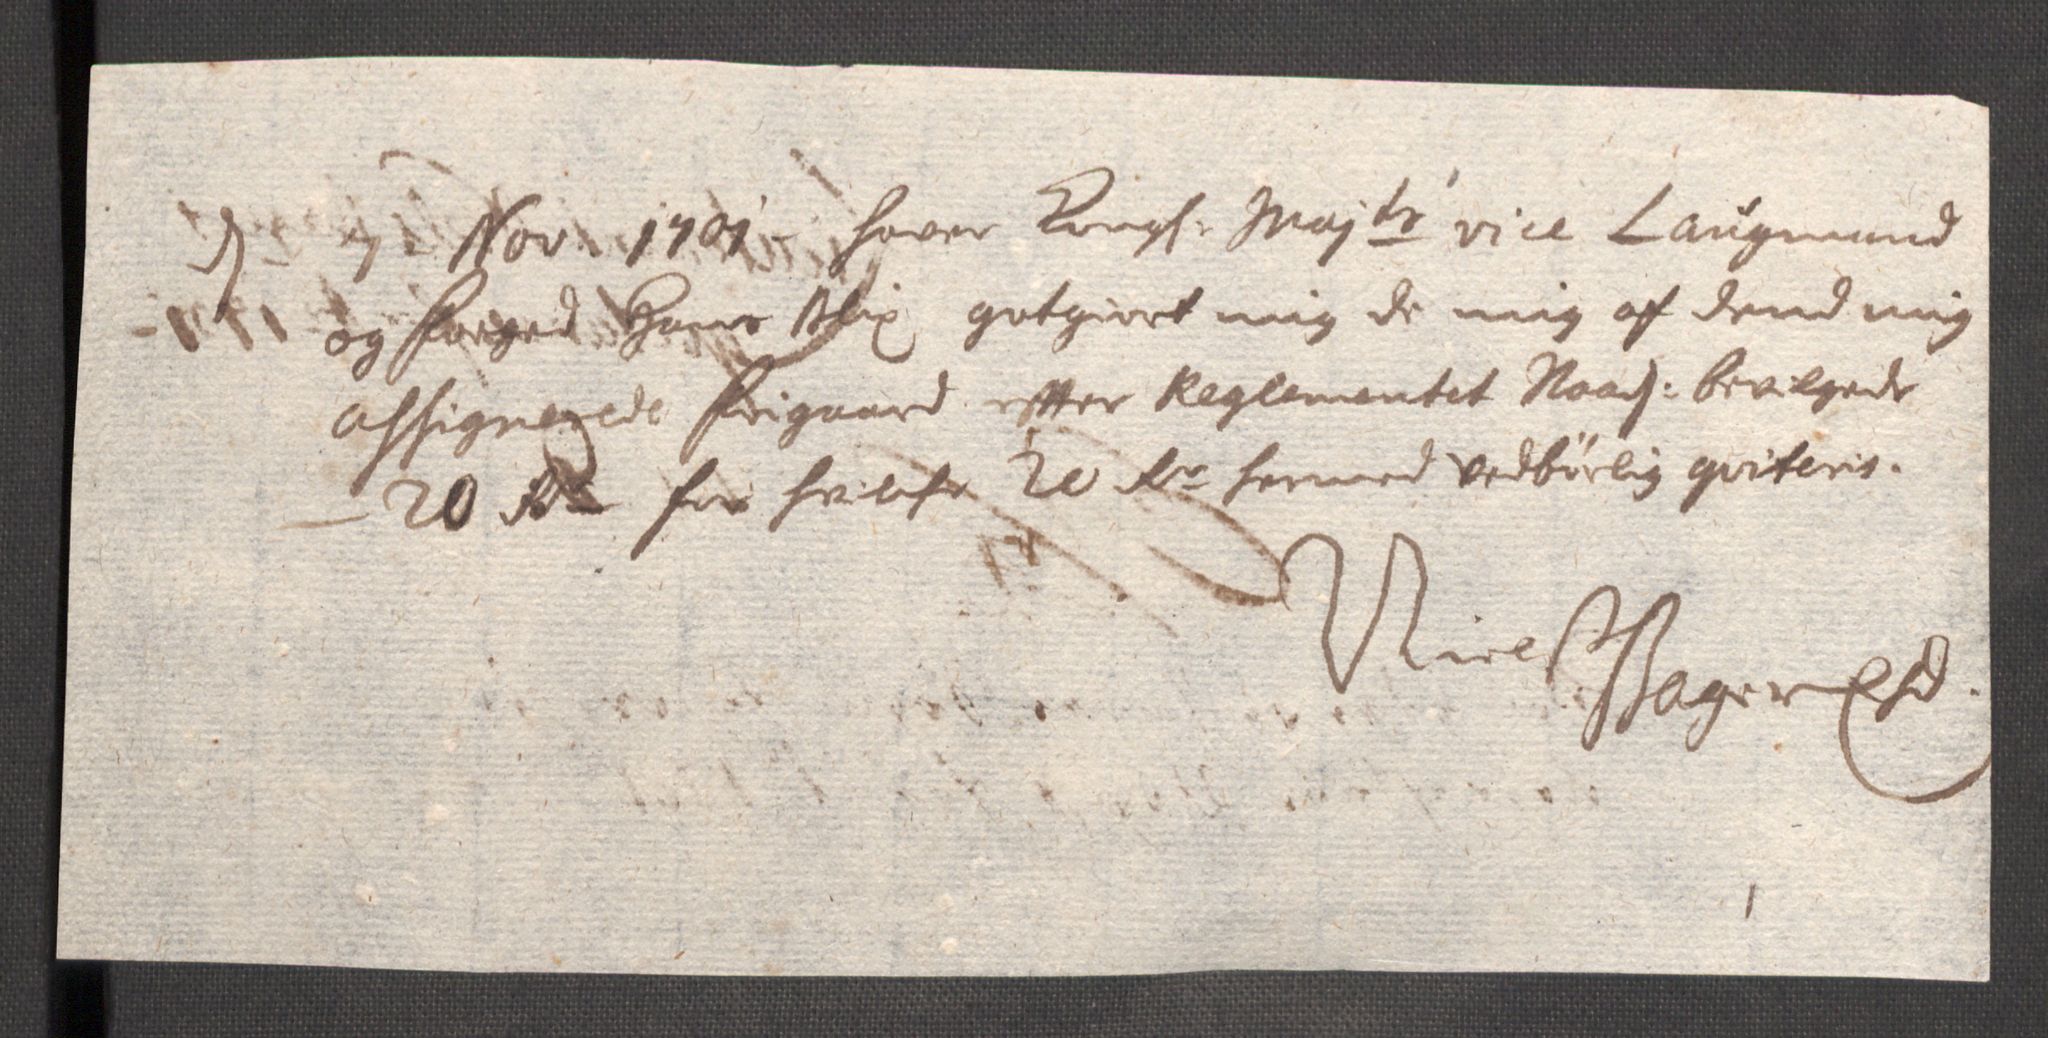 d. 7 Nov. 1701 - hafver Kongl: Maj:ts vice Laugmand
og Foeged Hans Blix gotgiort mig de mig af dend mig
assignerede frigaard efter Reglementet Naad: bevilgede
20 Rdr for hvilke 20 Rdr hermed vedbörlig qviteris.
Niels Pager